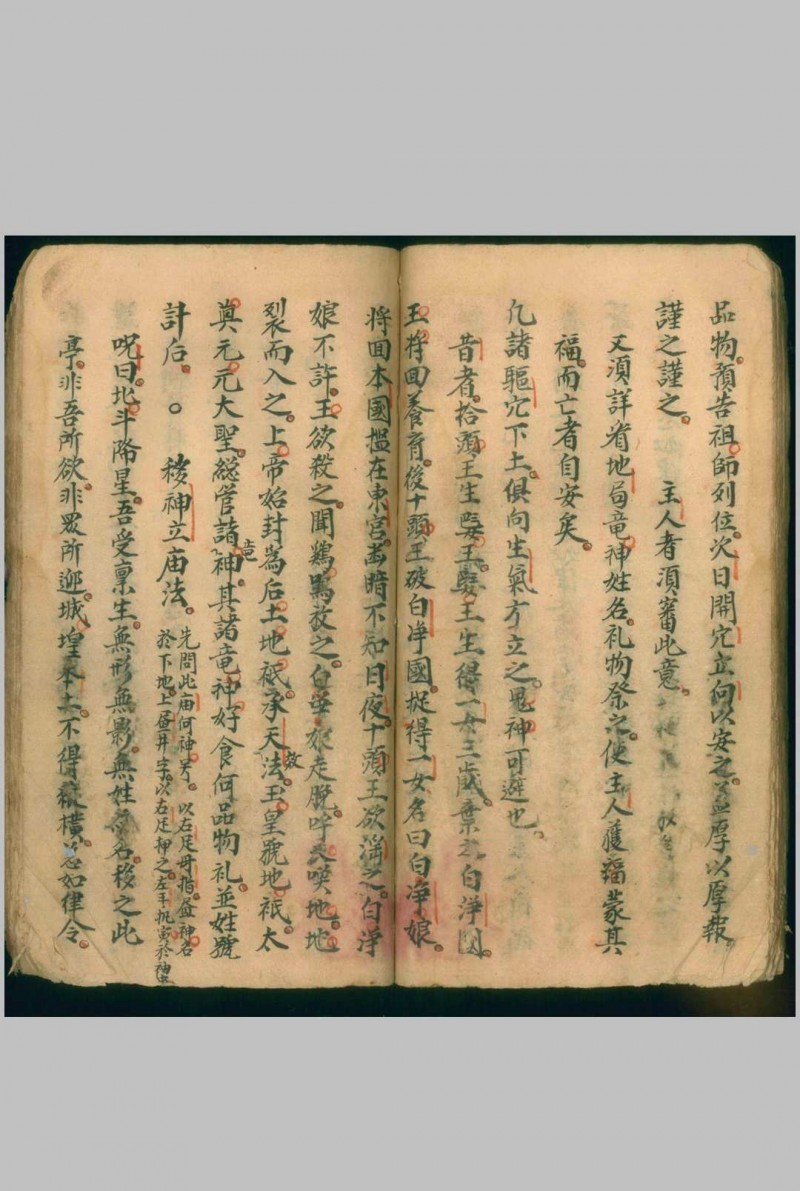 品物預告祖師列位次日開穴立向以安之益厚以厚報
謹之謹之 主人者須審此意
又須詳省地局竜神姓名礼物祭之使主人獲福蒙其
福而亡者自安矣
凡諸驅穴下土俱向生氣方立之鬼神可避也
昔者拾頭王生娶王娶王生得一女三歲棄之白淨國
王將回養育後十頭王破白净國捉得一女名曰白净娘
將回本國搵在東宮暗不知日夜十頭王欲淫之白净
娘不許王欲殺之聞鷄鳴放之白净娘走脫呼天嘆地地
裂而入之上帝始封為后土地祇承天法故玉皇號地祇太
真元元大聖総管諸竜神其諸竜神好食何品物礼並姓號
計后 移神立庙法
先問此庙何神号以右足母指画神名
於下地上画井字以右足押之左手執寅於神
呪曰北斗降星吾受禀生無形無影無姓無名移之此
亭非吾所欲非眾所迎城皇本土不得縱橫急如律令